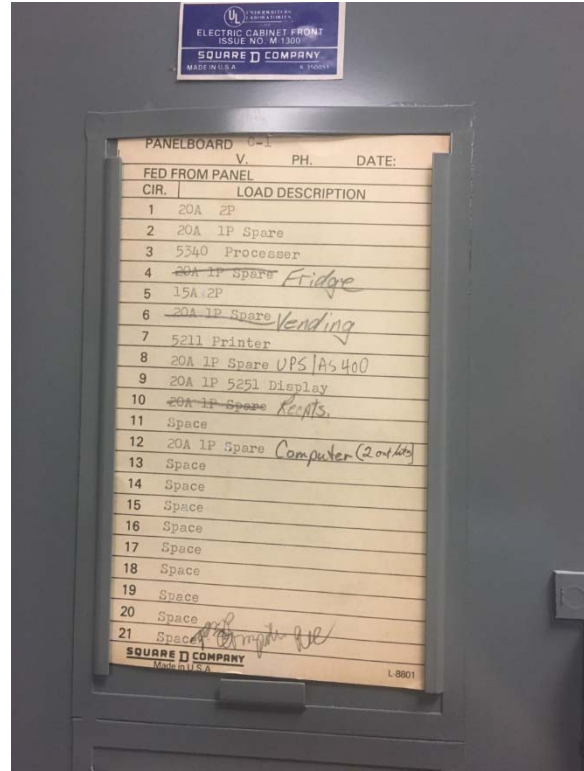 UL UNDERWRITERS LABORATORIES
ELECTRIC CABINET FRONT
ISSUE NO. M-1300
SQUARE D COMPANY
MADE IN U.S.A
PANELBOARD C-1
V. PH. DATE:
FED FROM PANEL
CIR. LOAD DESCRIPTION
1 20A 2P
2 20A 1P Spare
3 5340 Processer
4 20A 1P Spare Fridge
5 15A 2P
6 20A 1P Spare Vending
7 5211 Printer
8 20A 1P Spare UPS/AS400
9 20A 1P 5251 Display
10 20A 1P Spare Recpts.
11 Space
12 20A 1P Spare Computer (2 outlets)
13 Space
14 Space
15 Space
16 Space
17 Space
18 Space
19 Space
20 Space
21 Space
SQUARE D COMPANY
Made in U.S.A. L-8801